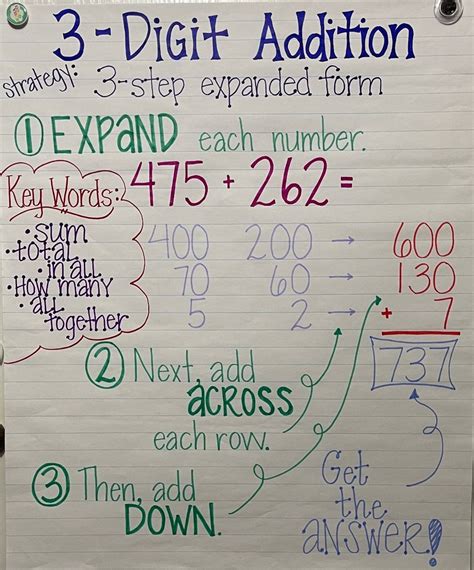 3-Digit Addition
strategy: 3-step expanded form
① EXPAND each number.
Key Words:
• sum
• total
• in all
• How many
• all
together
475 + 262 =
400 200 → 600
70 60 → 130
5 2 → + 7
737
② Next, add
across
each row.
③ Then, add
DOWN.
Get
the
answer!